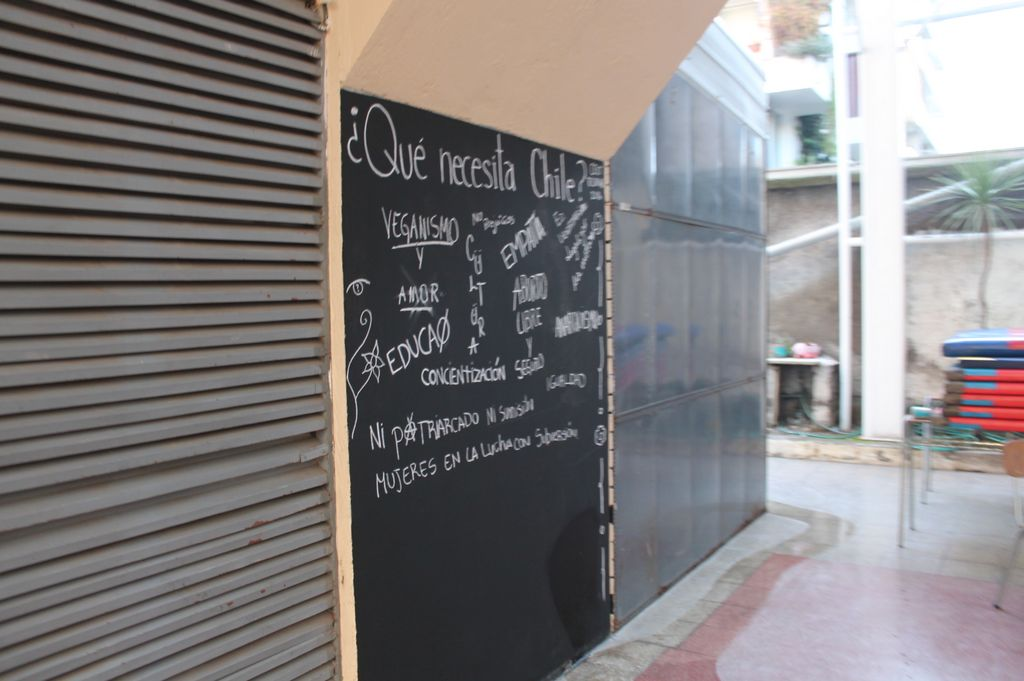 ¿Qué necesita Chile?
VEGANISMO
No
EMPATÍA
CULTURA
AMOR
ABORTO
LIBRE
Y
SEGURO
EDUCAO
CONCIENTIZACIÓN
IGUALDAD
Ni pATRIARCADO Ni Sumisión
MUJERES EN LA LUCHA CON SUBVERSIÓN